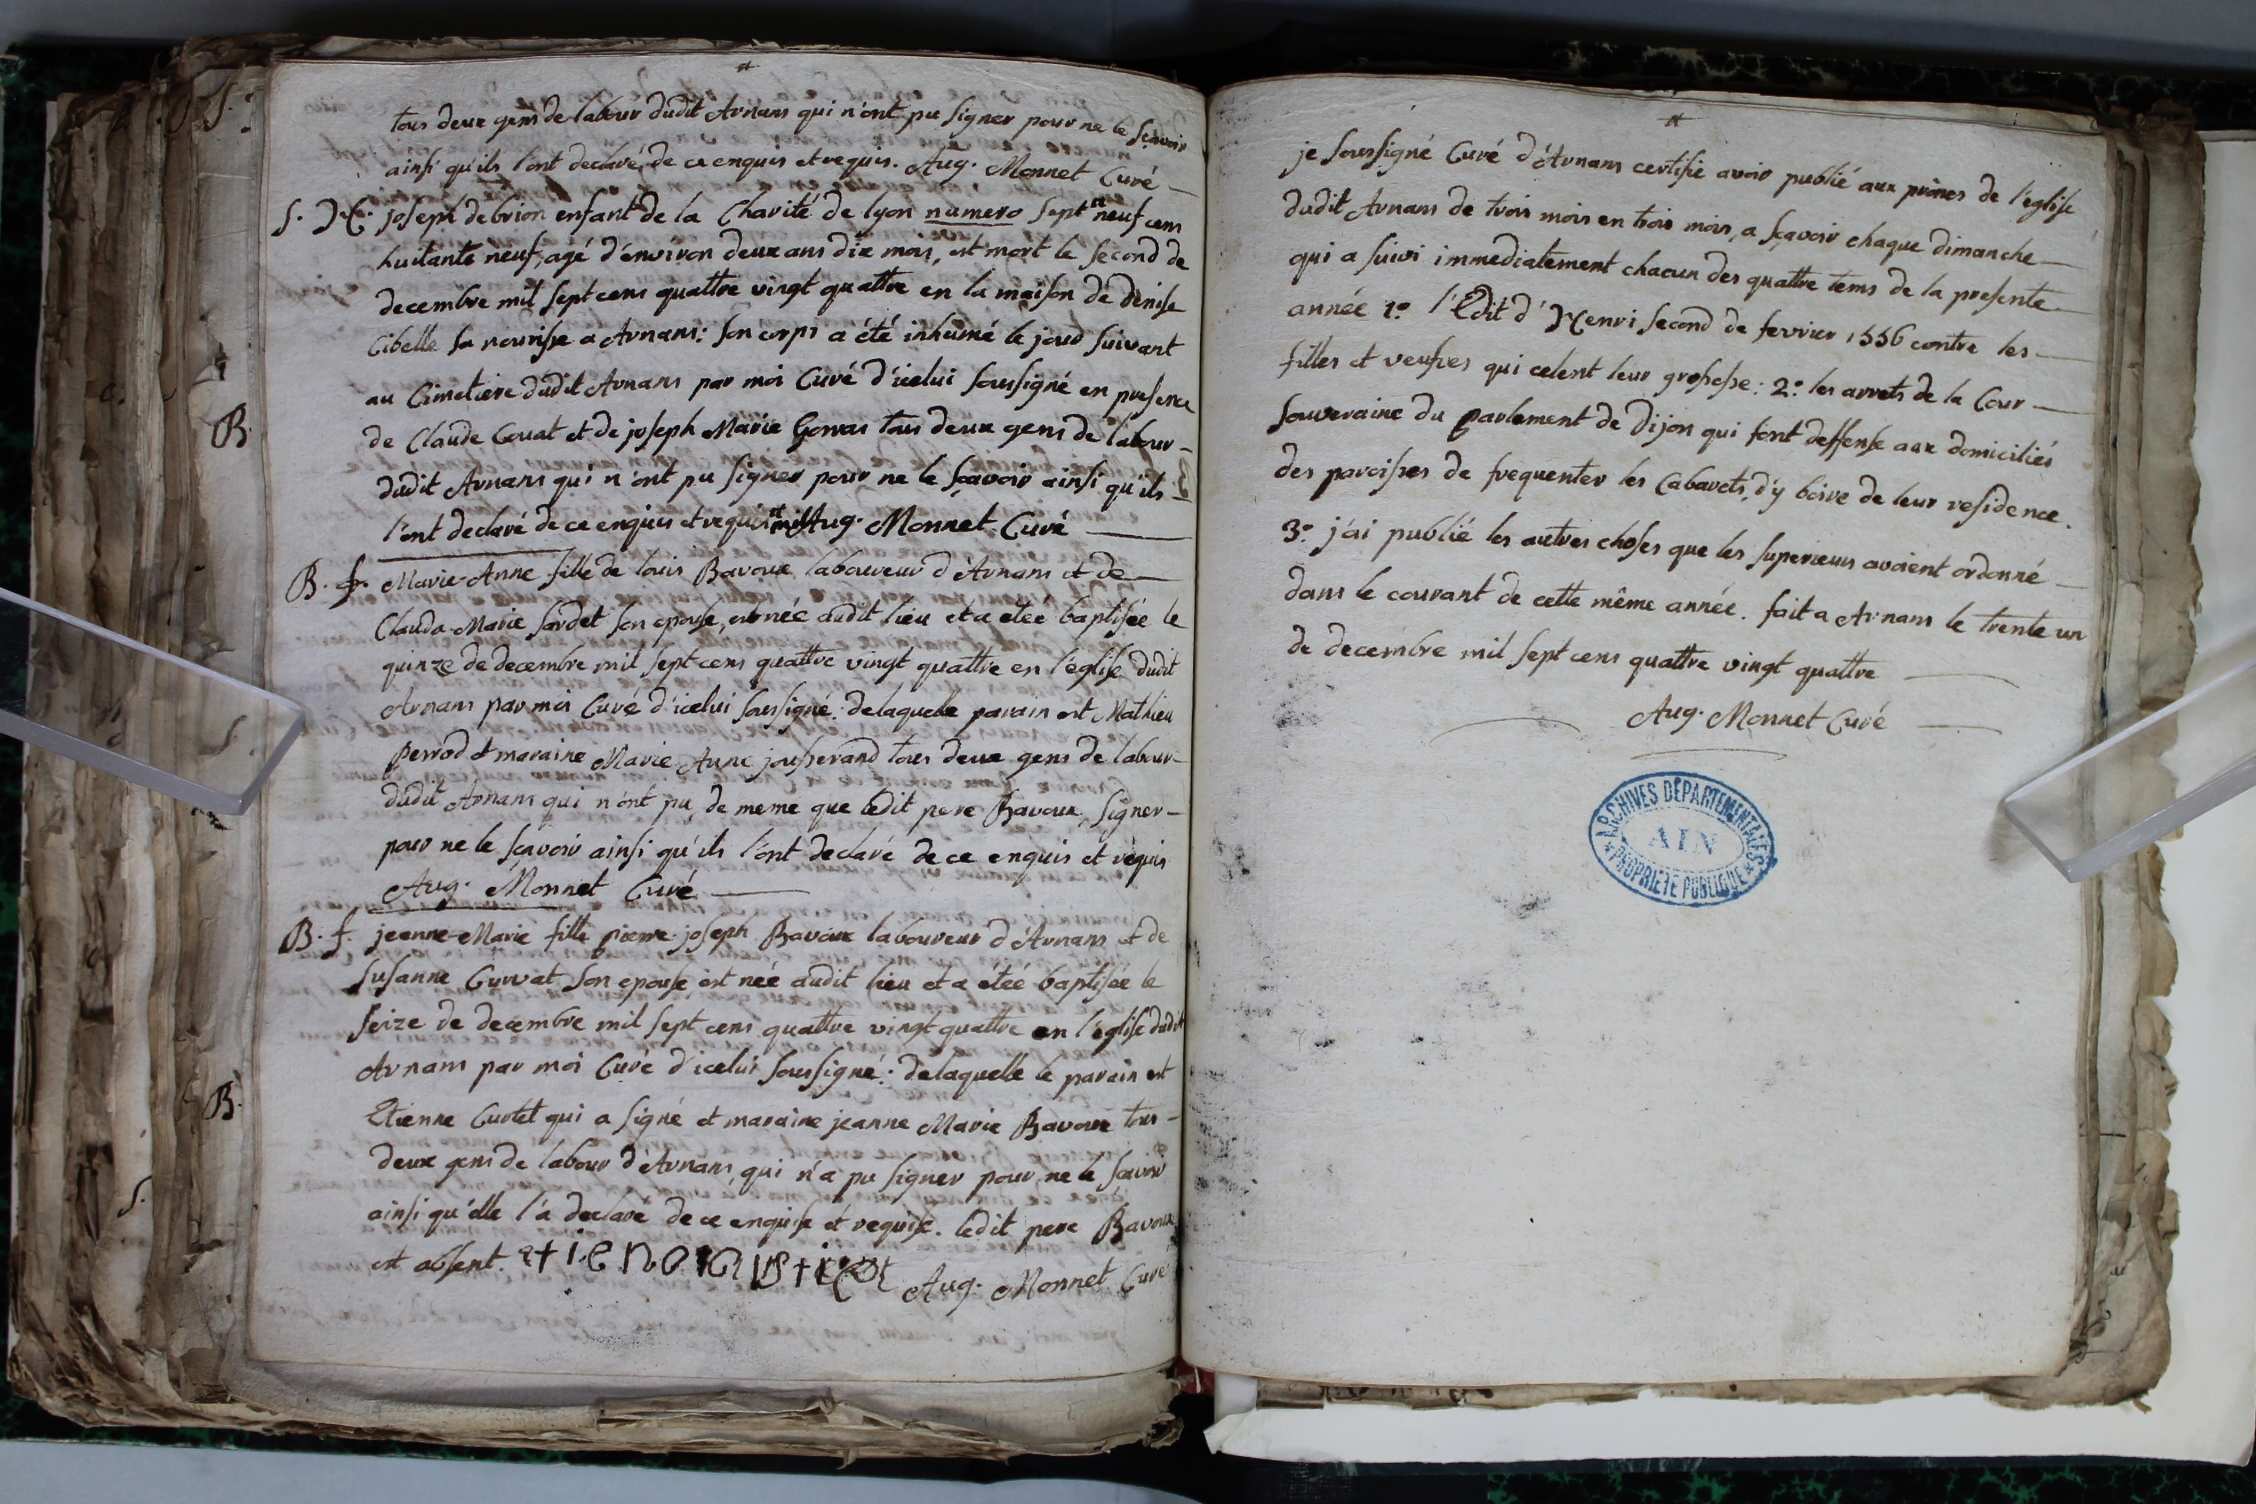 tous deux gens de labour dudit Arnans qui n'ont pu signer pour ne le sçavoir
ainsi qu'ils l'ont declaré de ce enquis et requis. Aug. Monnet Curé
S. H. joseph debrion enfant de la Charité de lyon numero sept neuf cens
huitante neuf, agé d'environ deux ans dix mois, est mort le second de
decembre mil sept cens quattre vingt quattre en la maison de denise
Cibelle sa nourisse a Arnans: son corps a été inhumé le jour suivant
au Cimetiere dudit Arnans par moi Curé d'icelui soussigné en presence
de Claude Couat et de joseph Marie tous deux gens de labour
dudit Arnans qui n'ont pu signer pour ne le sçavoir ainsi qu'ils
l'ont declaré de ce enquis et requis Aug. Monnet Curé
B. f. Marie-Anne fille de louis Bavoux laboureur d'Arnans et de
Clauda-Marie sardet son epouse, est née audit lieu et a etée baptisée le
quinze de decembre mil sept cens quattre vingt quattre en l'église dudit
Arnans par moi Curé d'icelui soussigné: de laquelle parain est Mathieu
perrod et maraine Marie-Anne jousserand tous deux gens de labour
dudit Arnans qui n'ont pu, de meme que ledit pere Bavoux, signer
pour ne le sçavoir ainsi qu'ils l'ont declaré de ce enquis et requis
Aug. Monnet Curé
B. f. jeanne-Marie fille pierre-joseph Bavoux laboureur d'Arnans et de
susanne Curvat son epouse est née audit lieu et a étée baptisée le
seize de decembre mil sept cens quattre vingt quattre en l'église dudit
Arnans par moi Curé d'icelui soussigné: de laquelle le parain est
Etienne Curtet qui a signé et maraine jeanne Marie Bavoux tous
deux gens de labour d'Arnans, qui n'a pu signer pour ne le sçavoir
ainsi qu'elle l'a declaré de ce enquise et requise. ledit pere Bavoux
est absent. Aug. Monnet Curé
S.
B.
S.
B.
S.
je soussigné Curé d'Arnans certifie avoir publié aux prônes de l'église
dudit Arnans de trois mois en trois mois, a sçavoir chaque dimanche
qui a suivi immediatement chacun des quattre tems de la presente
année 1.° l'Edit d'Henri second de fevrier 1556 contre les
filles et veufves qui celent leur grossesse: 2.° les arrets de la Cour
souveraine du parlement de Dijon qui font deffense aux domiciliés
des paroisses de frequenter les Cabarets, d'y boire de leur residence.
3.° j'ai publié les autres choses que les superieurs avoient ordonné
dans le courant de cette même année. fait a Arnans le trente un
de decembre mil sept cens quattre vingt quattre
Aug. Monnet Curé
ARCHIVES DÉPARTEMENTALES
AIN
PROPRIÉTÉ PUBLIQUE